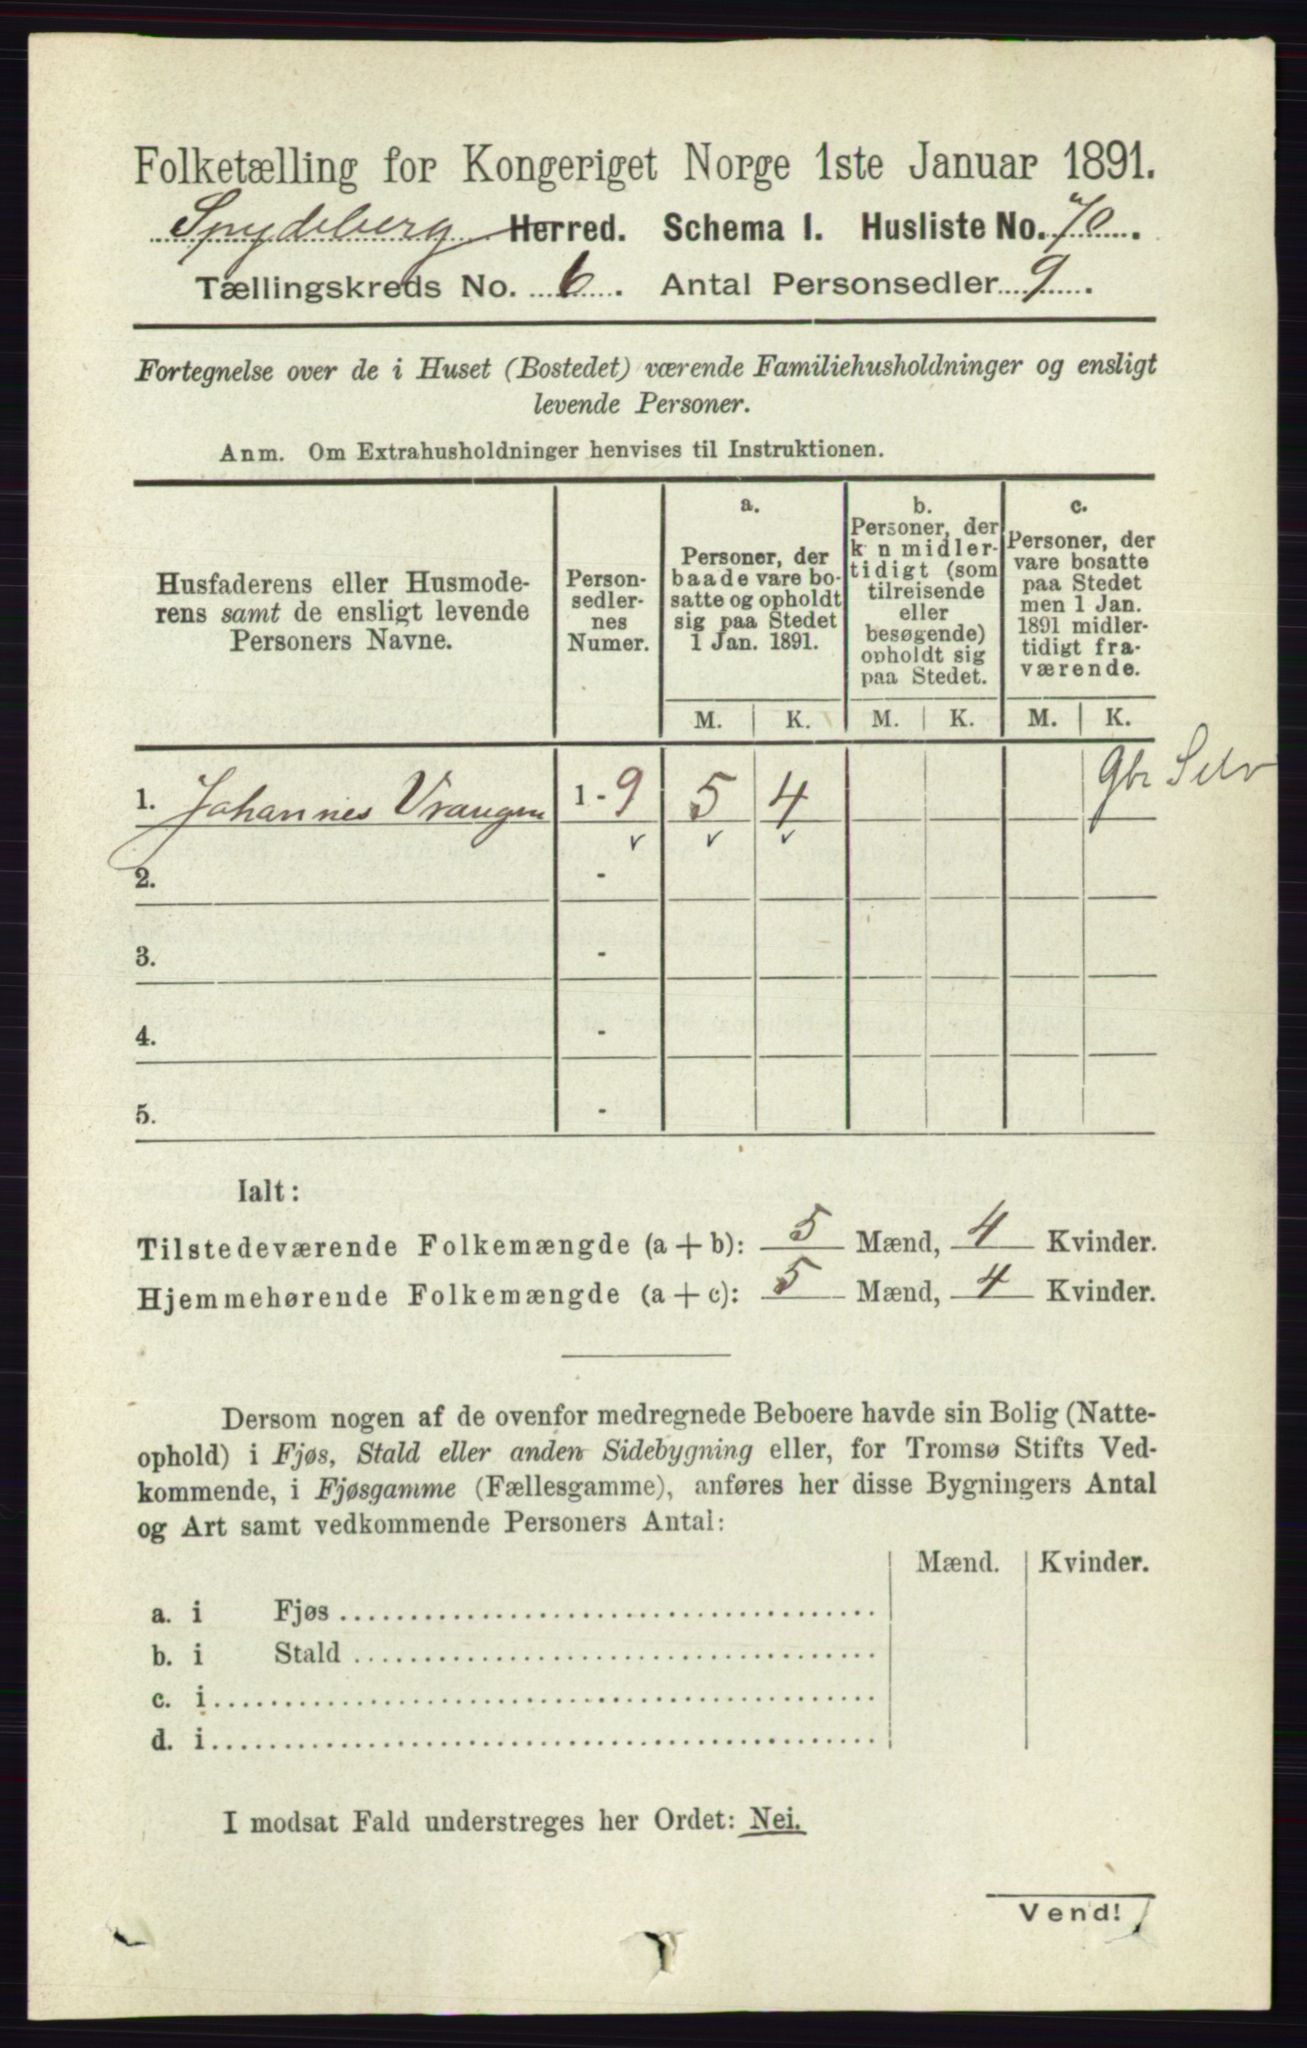 Folketælling for Kongeriget Norge 1ste Januar 1891.
Spydeberg Herred. Schema I. Husliste No. 70.
Tællingskreds No. 6. Antal Personsedler 9.
Fortegnelse over de i Huset (Bostedet) værende Familiehusholdninger og ensligt
levende Personer.
Anm. Om Extrahusholdninger henvises til Instruktionen.
Husfaderens eller Husmode-
rens samt de ensligt levende
Personers Navne.
Person-
sedler-
nes
Numer.
a.
Personer, der
baade vare bo-
satte og opholdt
sig paa Stedet
1 Jan. 1891.
b.
Personer, der
k n midler-
tidigt (som
tilreisende
eller
besøgende)
opholdt sig
paa Stedet.
c.
Personer, der
vare bosatte
paa Stedet
men 1 Jan.
1891 midler-
tidigt fra-
værende.
M. K. M. K. M. K.
1. Johannes Vrangen 1 - 9 5 4 Gbr Selv
2. -
3. -
4. -
5. -
Ialt:
Tilstedeværende Folkemængde (a + b): 5 Mænd, 4 Kvinder.
Hjemmehørende Folkemængde (a + c): 5 Mænd, 4 Kvinder.
Dersom nogen af de ovenfor medregnede Beboere havde sin Bolig (Natte-
ophold) i Fjøs, Stald eller anden Sidebygning eller, for Tromsø Stifts Ved-
kommende, i Fjøsgamme (Fællesgamme), anføres her disse Bygningers Antal
og Art samt vedkommende Personers Antal:
Mænd. Kvinder.
a. i Fjøs
b. i Stald
c. i
d. i
I modsat Fald understreges her Ordet: Nei.
Vend!